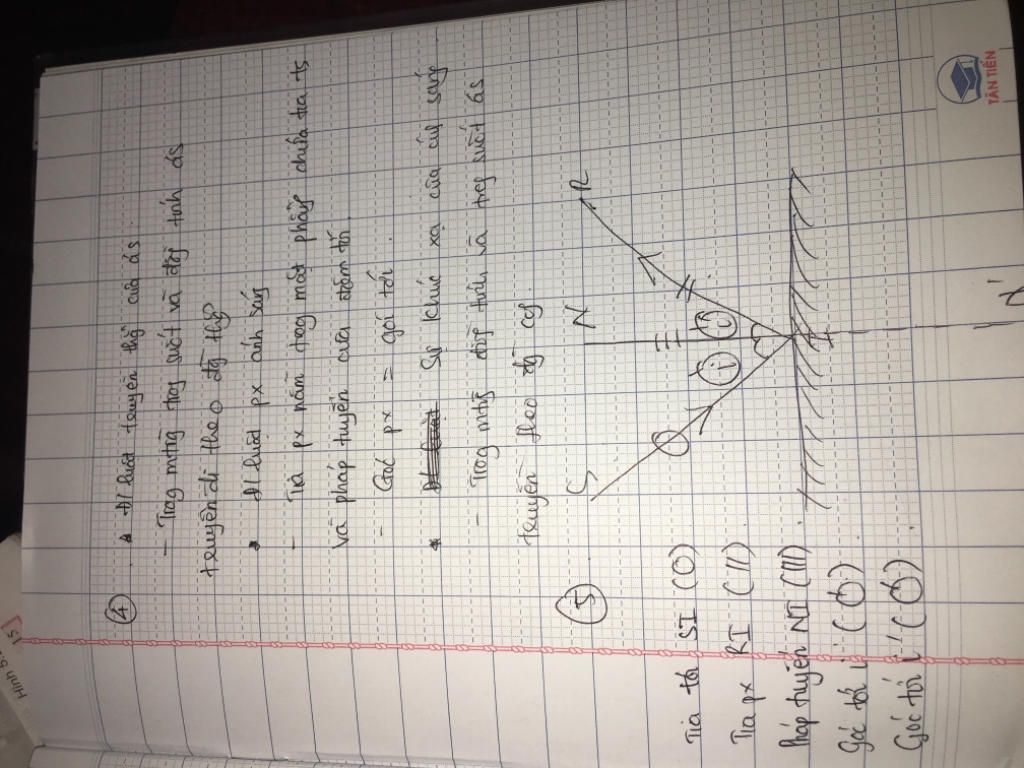 ④ * Đ/luật truyền thẳg của ás
- Trog mtrg trog suốt và đồg tính ás
truyền đi theo đg thẳg
* Đ/luật px ánh ság
- Tia px nằm trog mặt phẳg chứa tia ts
và pháp tuyến của điểm tới.
- Góc px = góc tới.
* Sự khúc xạ của ás
- Trog mtrg đồg tính và trog suốt ás
truyền theo đg
⑤
S N R
i i'
I
N'
Tia tới SI (O)
Tia px RI (II)
Pháp tuyến NI (III)
Góc tới i
Góc tới i'
Hình 5.2
15
TÂN TIẾN